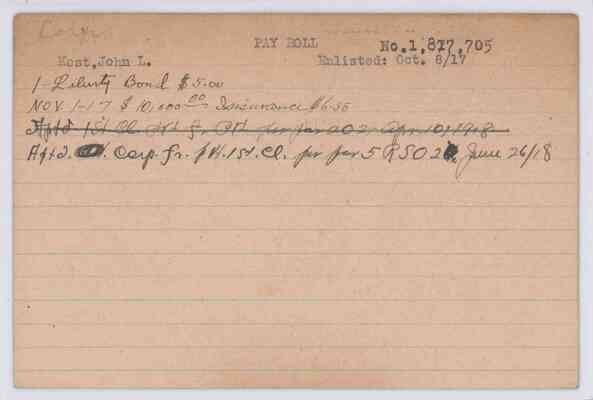 Corp.
PAY ROLL No.1,827,705
Kost,John L. Enlisted: Oct. 8/17
1- Liberty Bond $5.00
NOV. 1-17 $10,000 00 Insurance $6.50
Aptd 1st Cl Pvt fr Pvt per par 20 2, Apr 10, 1918
Aptd. Corp. fr. Pvt. 1st. Cl. per par 5 RSO 2 June 26/18